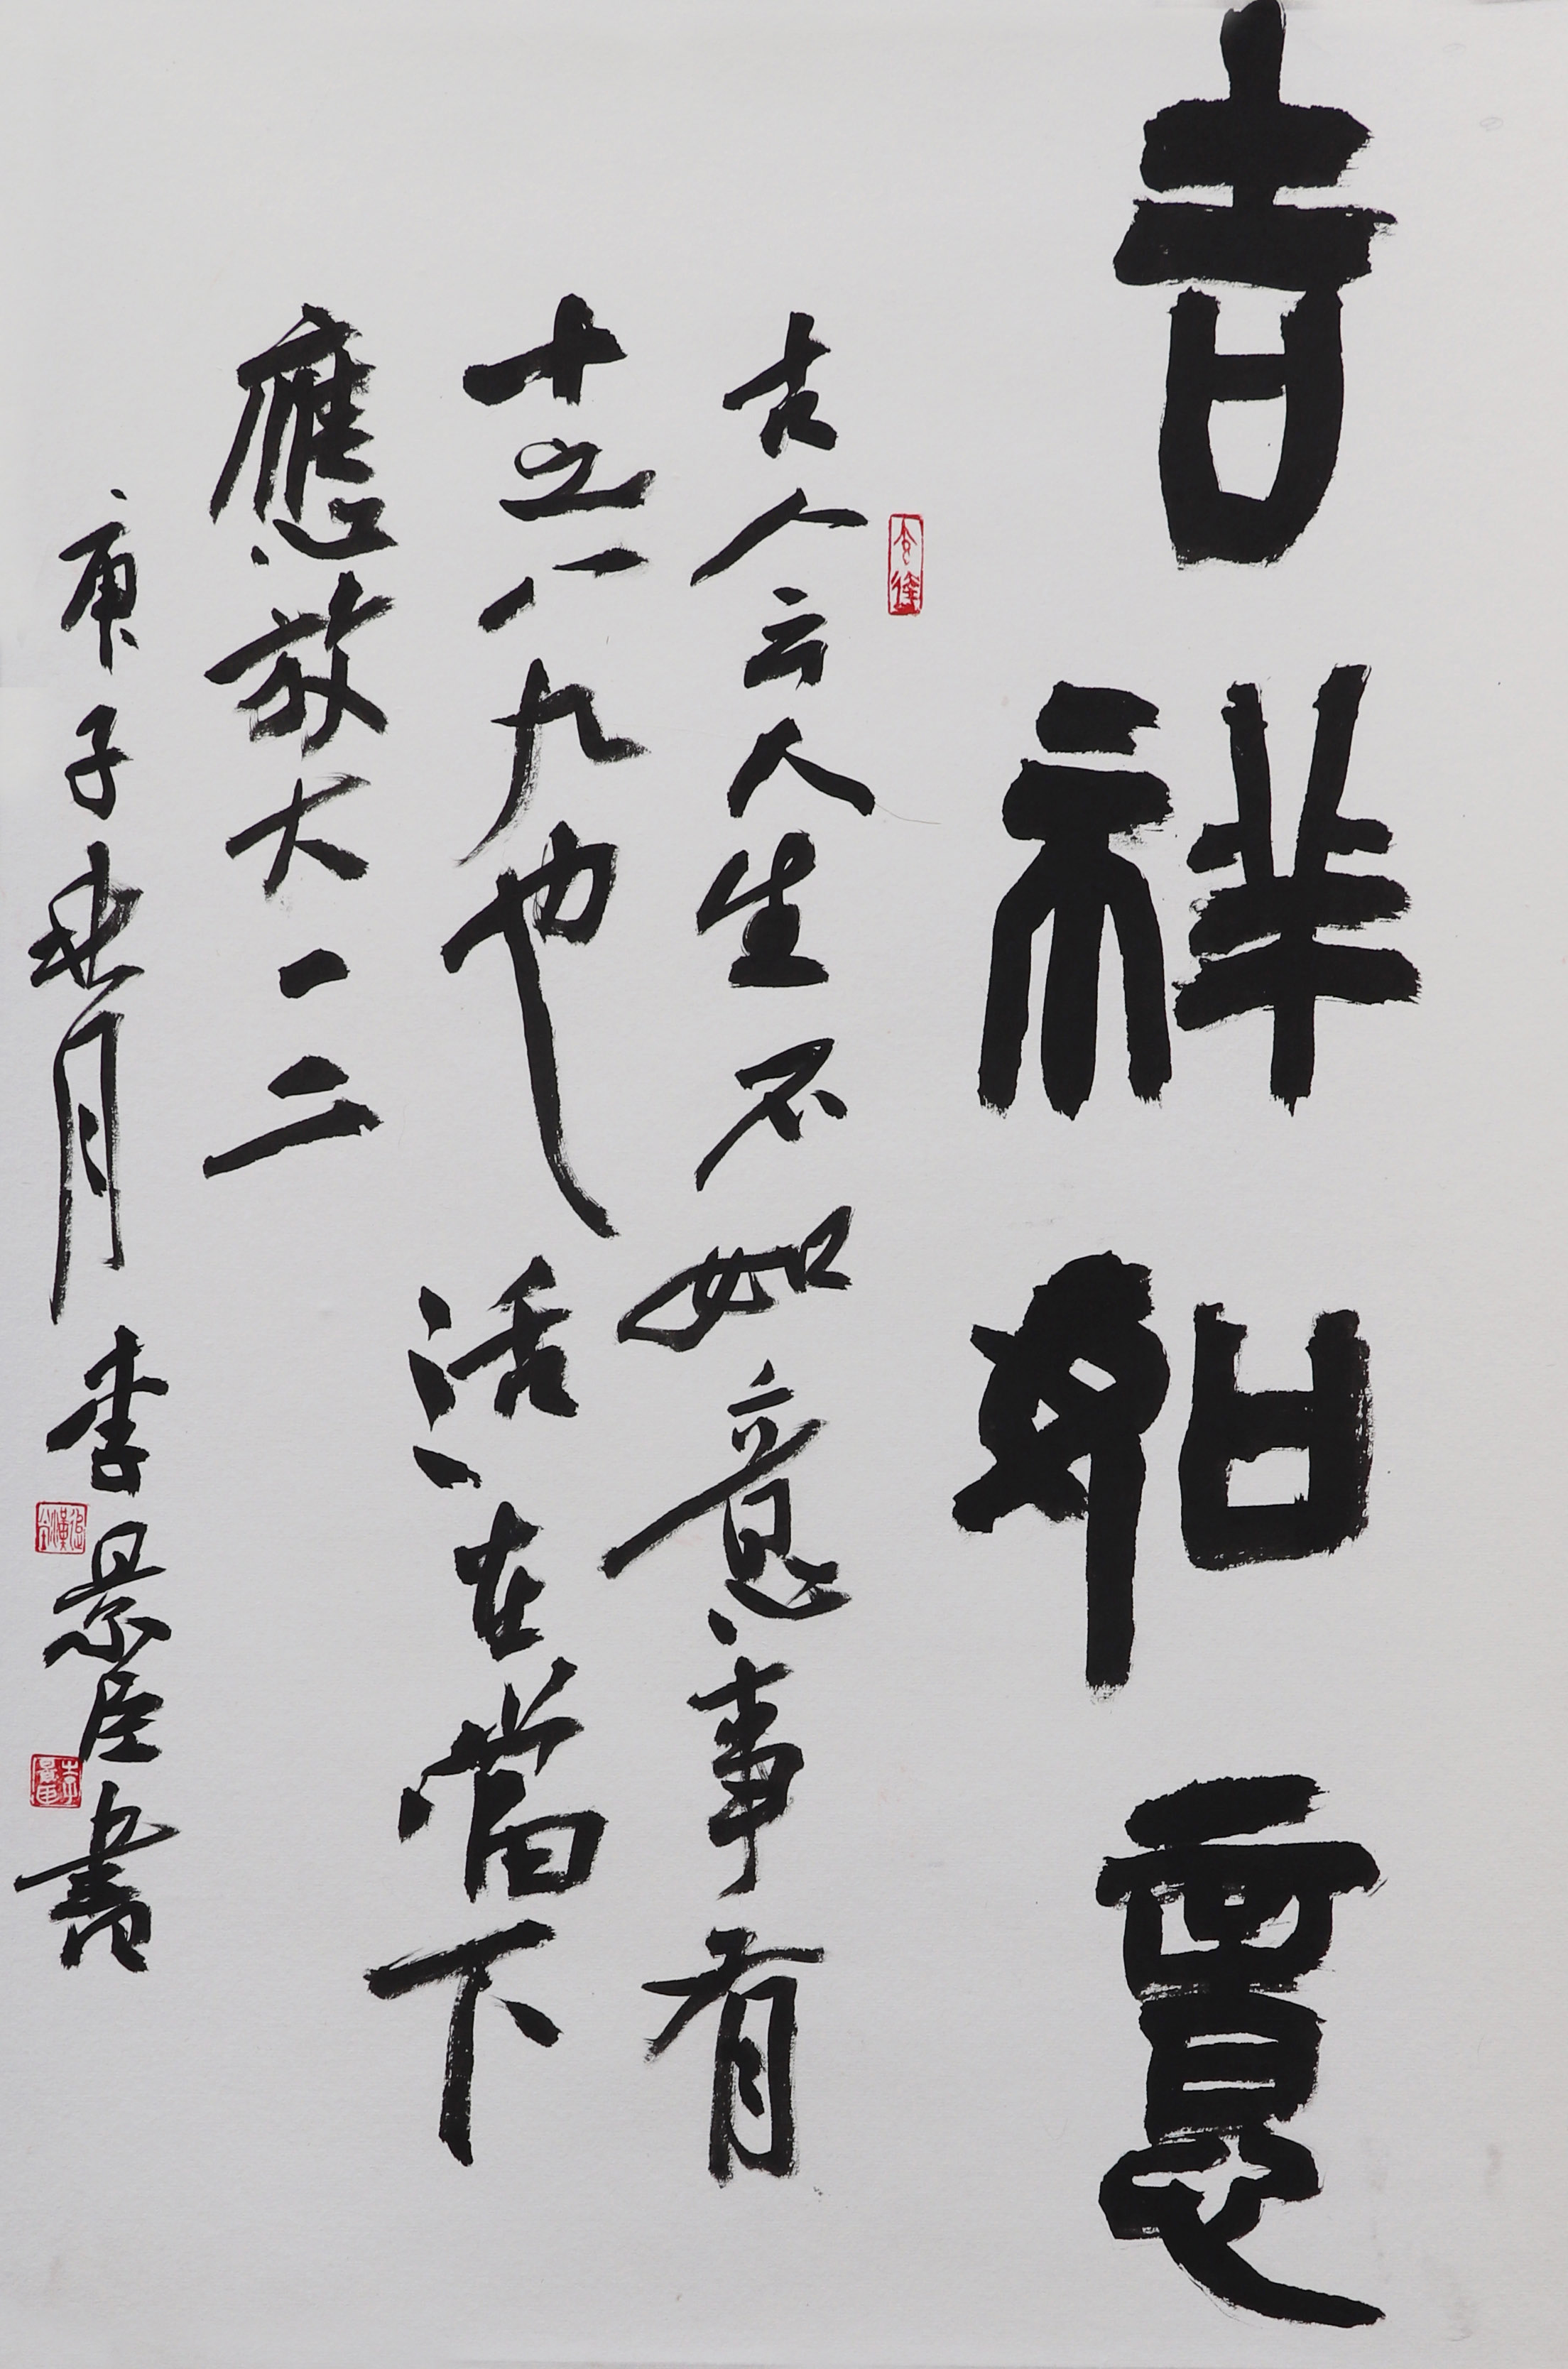 吉祥如意
古人云人生不如意事有
十之八九也活在當下
應放大一二
庚子 月李景臣書
李景臣